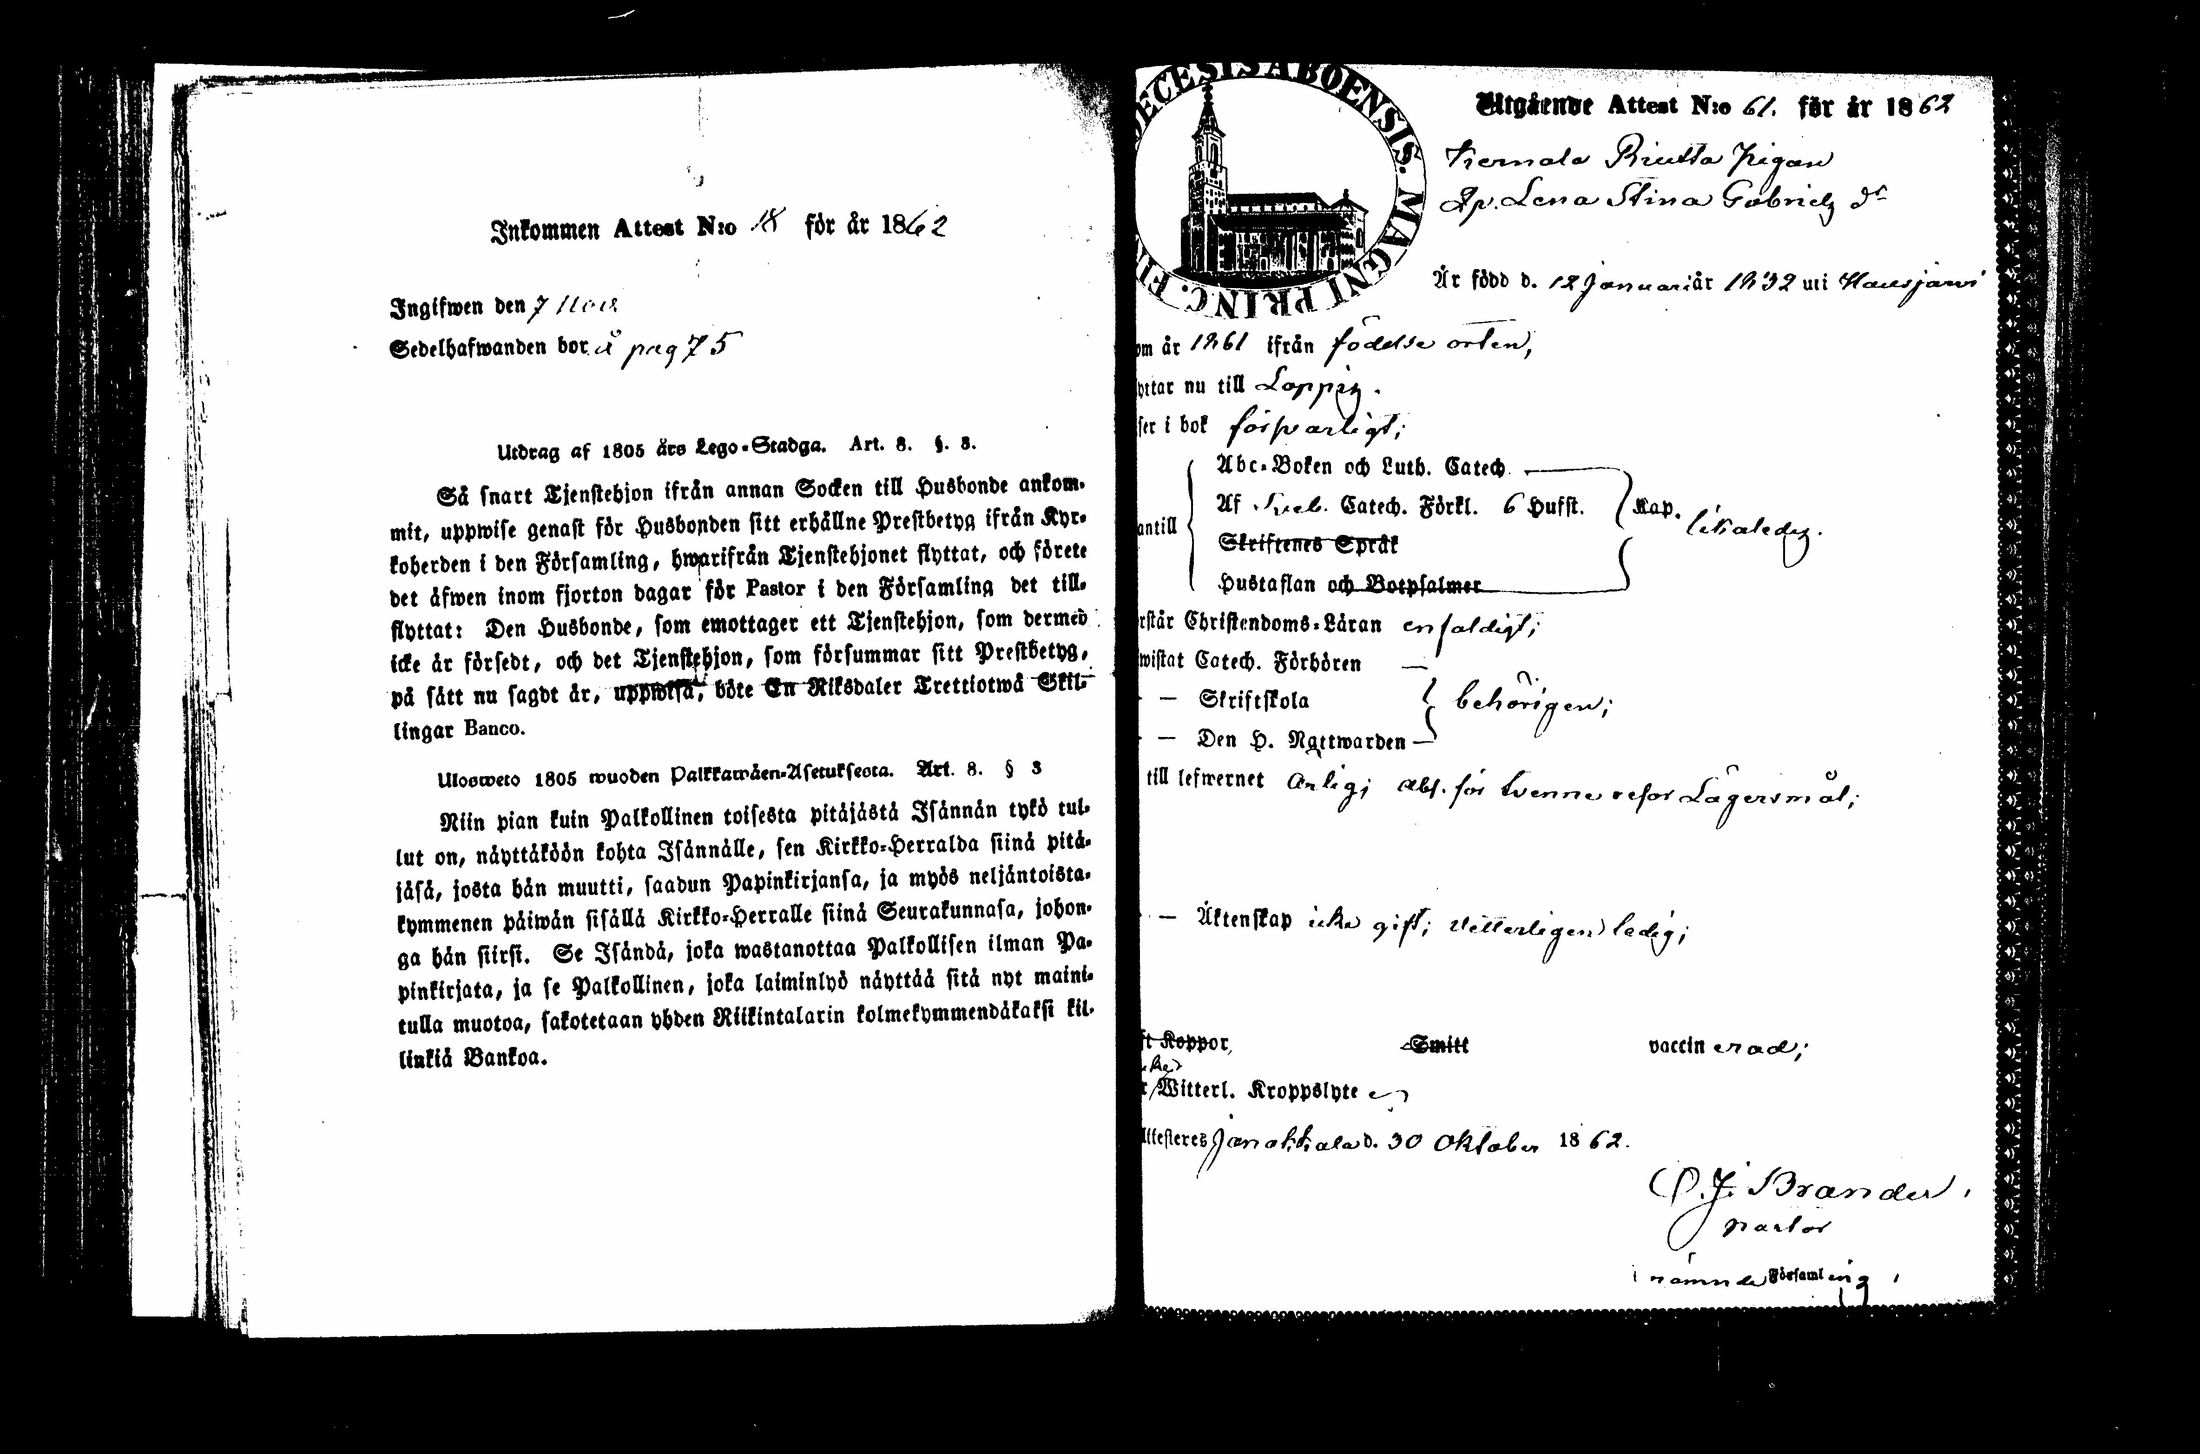 Inkommen Attest N:o 18 för år 1862
Ingifwen den 7 Nov
Sedelhafwanden bor å pag 75
Utdrag af 1805 års Lego-Stadga. Art. 8. §. 3.
Så snart Tjenstehjon ifrån annan Socken till Husbonde ankom-
mit, uppwise genast för Husbonden sitt erhållne Prestbetyg ifrån Kyr-
koherden i den Församling, hwarifrån Tjenstehjonet flyttat, och förete
det äfwen inom fjorton dagar för Pastor i den Församling det till-
flyttat: Den Husbonde, som emottager ett Tjenstehjon, som dermed
icke är försedt, och det Tjenstehjon, som försummar sitt Prestbetyg,
på sätt nu sagdt är, uppwisa, böte En Riksdaler Trettiotwå Skil-
lingar Banco.
Ulosweto 1805 wuoden Palkkawäen-Asetuksesta. Art. 8. § 3
Niin pian kuin Palkollinen toisesta pitäjästä Isännän tykö tul-
lut on, näyttäköön kohta Isännälle, sen Kirkko-Herralda siinä pitä-
jäsä, josta hän muutti, saadun Papinkirjansa, ja myös neljäntoista-
kymmenen päiwän sisällä Kirkko-Herralle siinä Seurakunnasa, johon-
ga hän siirsi. Se Isändä, joka wastanottaa Palkollisen ilman Pa-
pinkirjata, ja se Palkollinen, joka laiminlyö näyttää sitä nyt maini-
tulla muotoa, sakotetaan yhden Riikintalarin kolmekymmendäkaksi kil-
linkiä Bankoa.
ECESIS ABOENSIS. MAGNI PRINC. FI
Utgående Attest N:o 61. för år 1862
Pigan
Lena Stina Gabriels dr
Är född d. 12 Januari år 1832 uti Hausjärvi
om år 1861 ifrån födelse orten,
yttar nu till Loppis.
ser i bok försvarligt;
antill
Abc-Boken och Luth. Catech.
Af Sveb. Catech. Förkl. 6 Hufst.
Kap. likaledes.
Skriftenes Språk
Hustaflan och Botpsalmer
rstår Christendoms-Läran enfaldigt;
wistat Catech. Förhören —
— Skriftskola
behörigen;
— Den H. Nattwarden —
till lefwernet ärlig; abs. för tvenne resor Lägersmål;
— Äktenskap icke gift; vetterligen ledig;
ft Koppor, Smitt vaccin erad;
r Witterl. Kroppslyte
Attesteres Janakkala d. 30 Oktober 1862.
C. J. Brander,
pastor
i nämnde Församling,